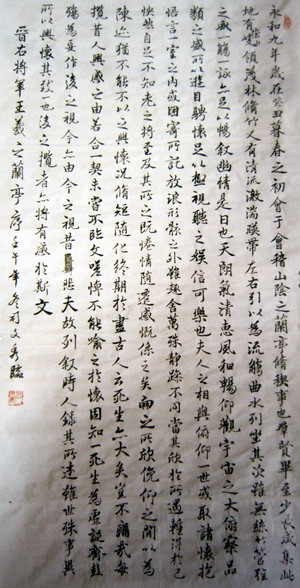 永和九年歲在癸丑暮春之初會于會稽山陰之蘭亭脩稧事也群賢畢至少長咸集此
地有崇山峻領茂林脩竹又有清流激湍暎帶左右引以為流觴曲水列坐其次雖無絲竹管弦
之盛一觴一詠亦足以暢叙幽情是日也天朗氣清惠風和暢仰觀宇宙之大俯察品
類之盛所以遊目騁懷足以極視聽之娛信可樂也夫人之相與俯仰一世或取諸懷抱
悟言一室之內或因寄所託放浪形骸之外雖趣舍萬殊靜躁不同當其欣於所遇暫得於己
怏然自足不知老之將至及其所之既惓情隨事遷感慨係之矣向之所欣俛仰之閒以為
陳迹猶不能不以之興懷況脩短隨化終期於盡古人云死生亦大矣豈不痛哉每
攬昔人興感之由若合一契未嘗不臨文嗟悼不能喻之於懷固知一死生為虛誕齊彭
殤為妄作後之視今亦由今之視昔悲夫故列叙時人錄其所述雖世殊事異
所以興懷其致一也後之攬者亦將有感於斯文
晉右將軍王羲之蘭亭序壬午年冬月文秀臨